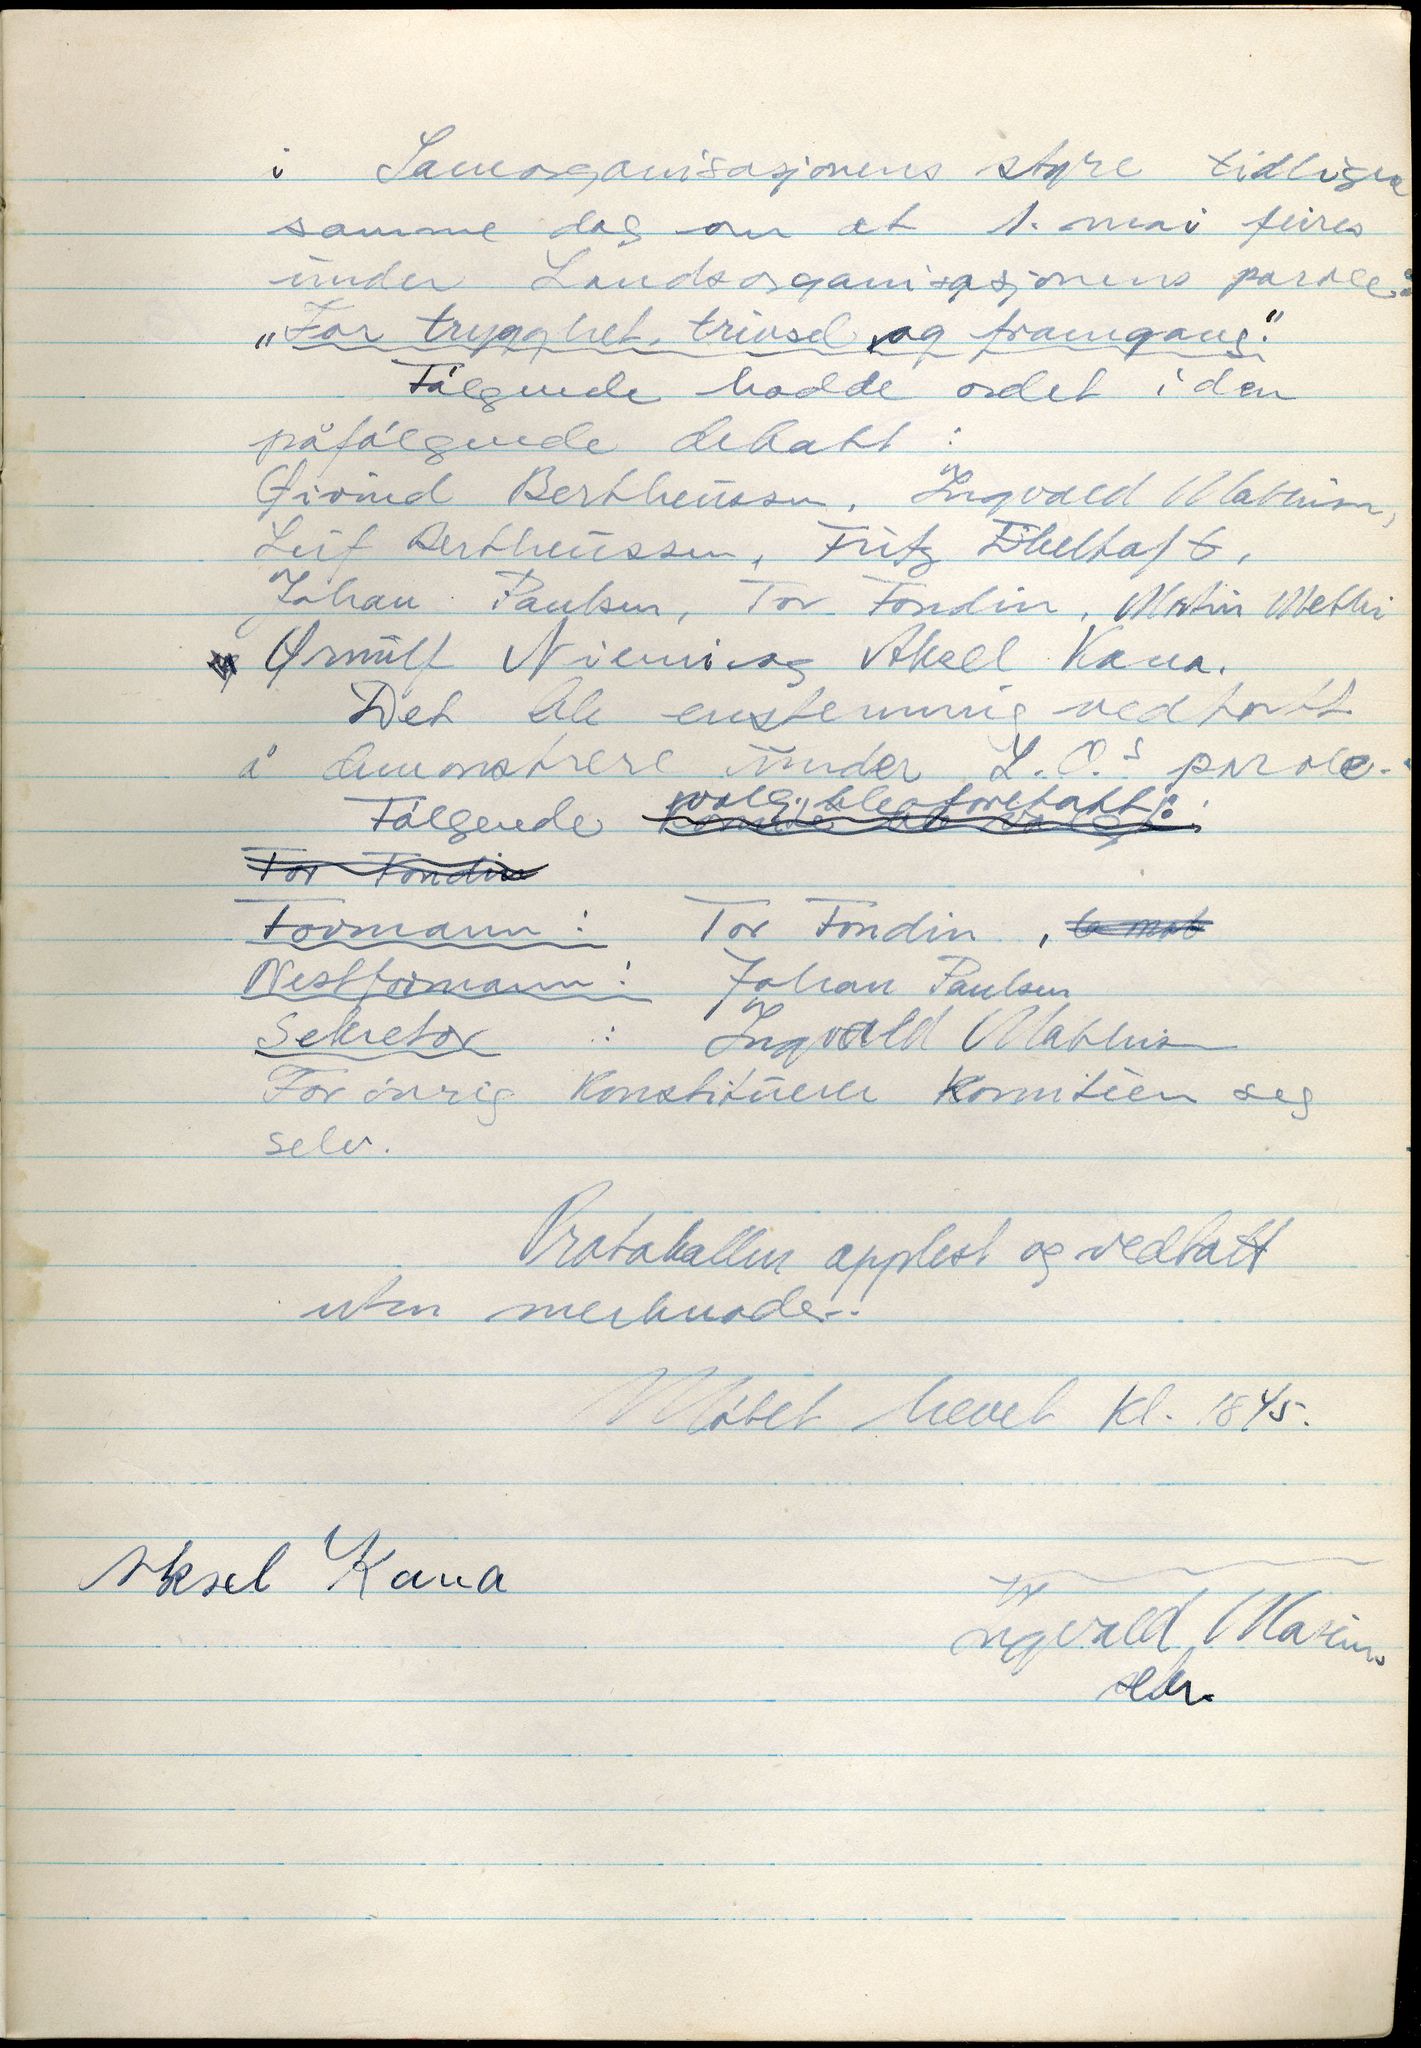 i Samorganisasjonens styre tidligere
samme dag om at 1. mai feires
under Landsorganisasjonens parole:
„For trygghet, trivsel og framgang."
Følgende hadde ordet i den
påfølgende debatt :
Øivind Bertheussen, Ingvald Mathisen,
Leif Bertheussen, Fritz Ebeltoft,
Johan Paulsen, Tor Fondin, Martin
Ørnulf Niemi og Aksel Kana.
Det ble enstemmig vedtatt
å demonstrere under L.O.s parole.
Følgende valg ble foretatt:
Tor Fondin
Formann : Tor Fondin,
Nestformann : Johan Paulsen
Sekretær : Ingvald Mathisen
For øvrig konstituerer komitéen seg
selv.
Protokollen opplest og vedtatt
uten merknader.
Møtet hevet kl. 1845.
Aksel Kana
Ingvald
sekr.